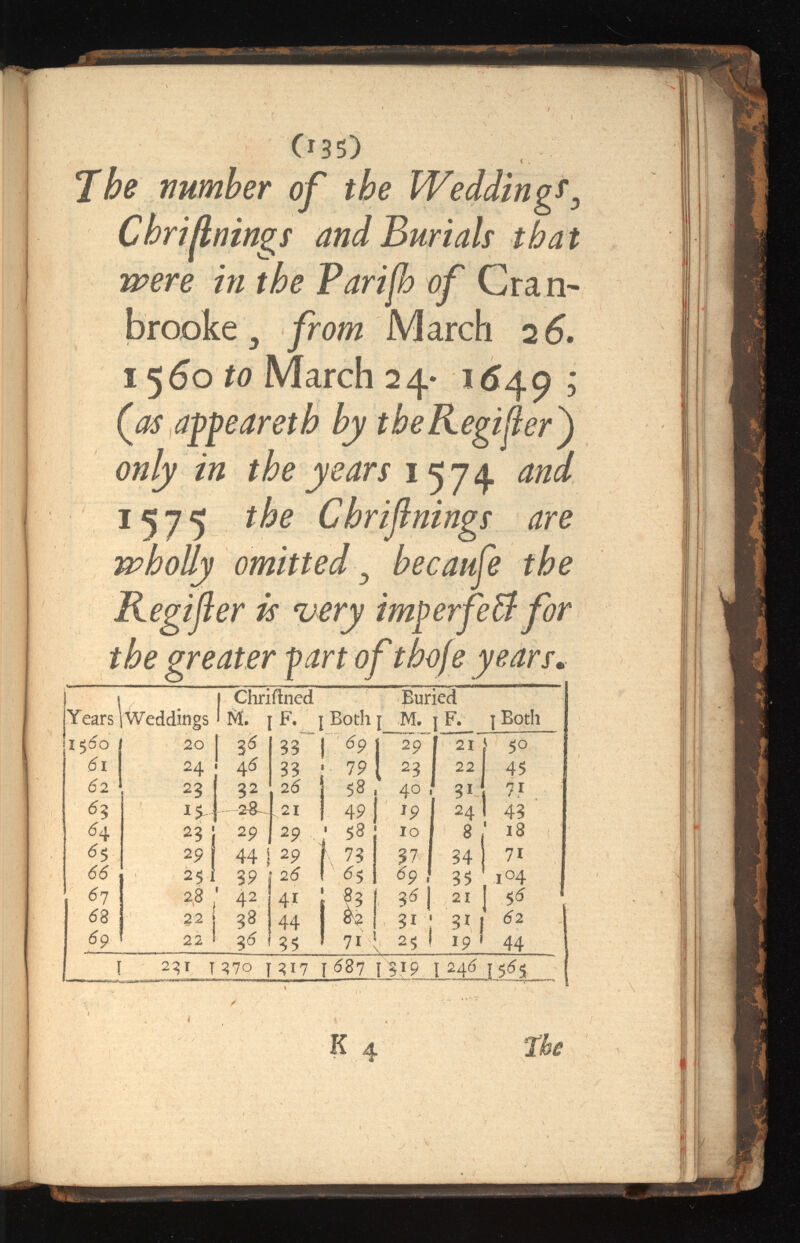 (135)
The number of the Weddings,
Chriſtnings and Burials that
were in the Pariſh of Cran-
brooke, from March 26.
1560 to March 24. 1649 ;
(as appeareth by the Regiſter)
only in the years 1574 and
1575 the Chriſtnings are
wholly omitted, becauſe the
Regiſter is very imperfect for
the greater part of thoſe years.
Chriſtned Buried
Years Weddings M. F. Both M. F. Both
1560 20 36 33 69 29 21 50
61 24 46 33 79 23 22 45
62 23 32 26 58 40 31 71
63 15 28 21 49 19 24 43
64 23 29 29 58 10 8 18
65 29 44 29 73 37 34 71
66 25 39 26 65 69 35 104
67 28 42 41 83 36 21 56
68 22 38 44 82 31 31 62
69 22 36 35 71 25 19 44
231 370 317 687 319 246 565
K 4 The